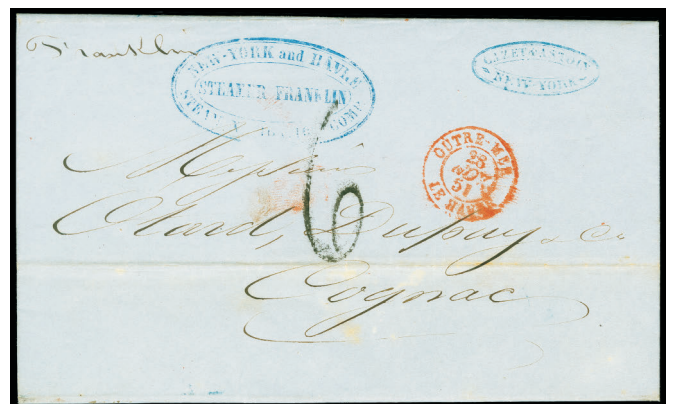 Franklin
NEW-YORK and HAVRE
STEAMER FRANKLIN
STEAM
COMP
CAZET & ASTOIN
NEW-YORK
OUTRE-MER
28
NOV
51
LE HAVRE
6
Messieurs
Otard, Dupuy & Co
Cognac